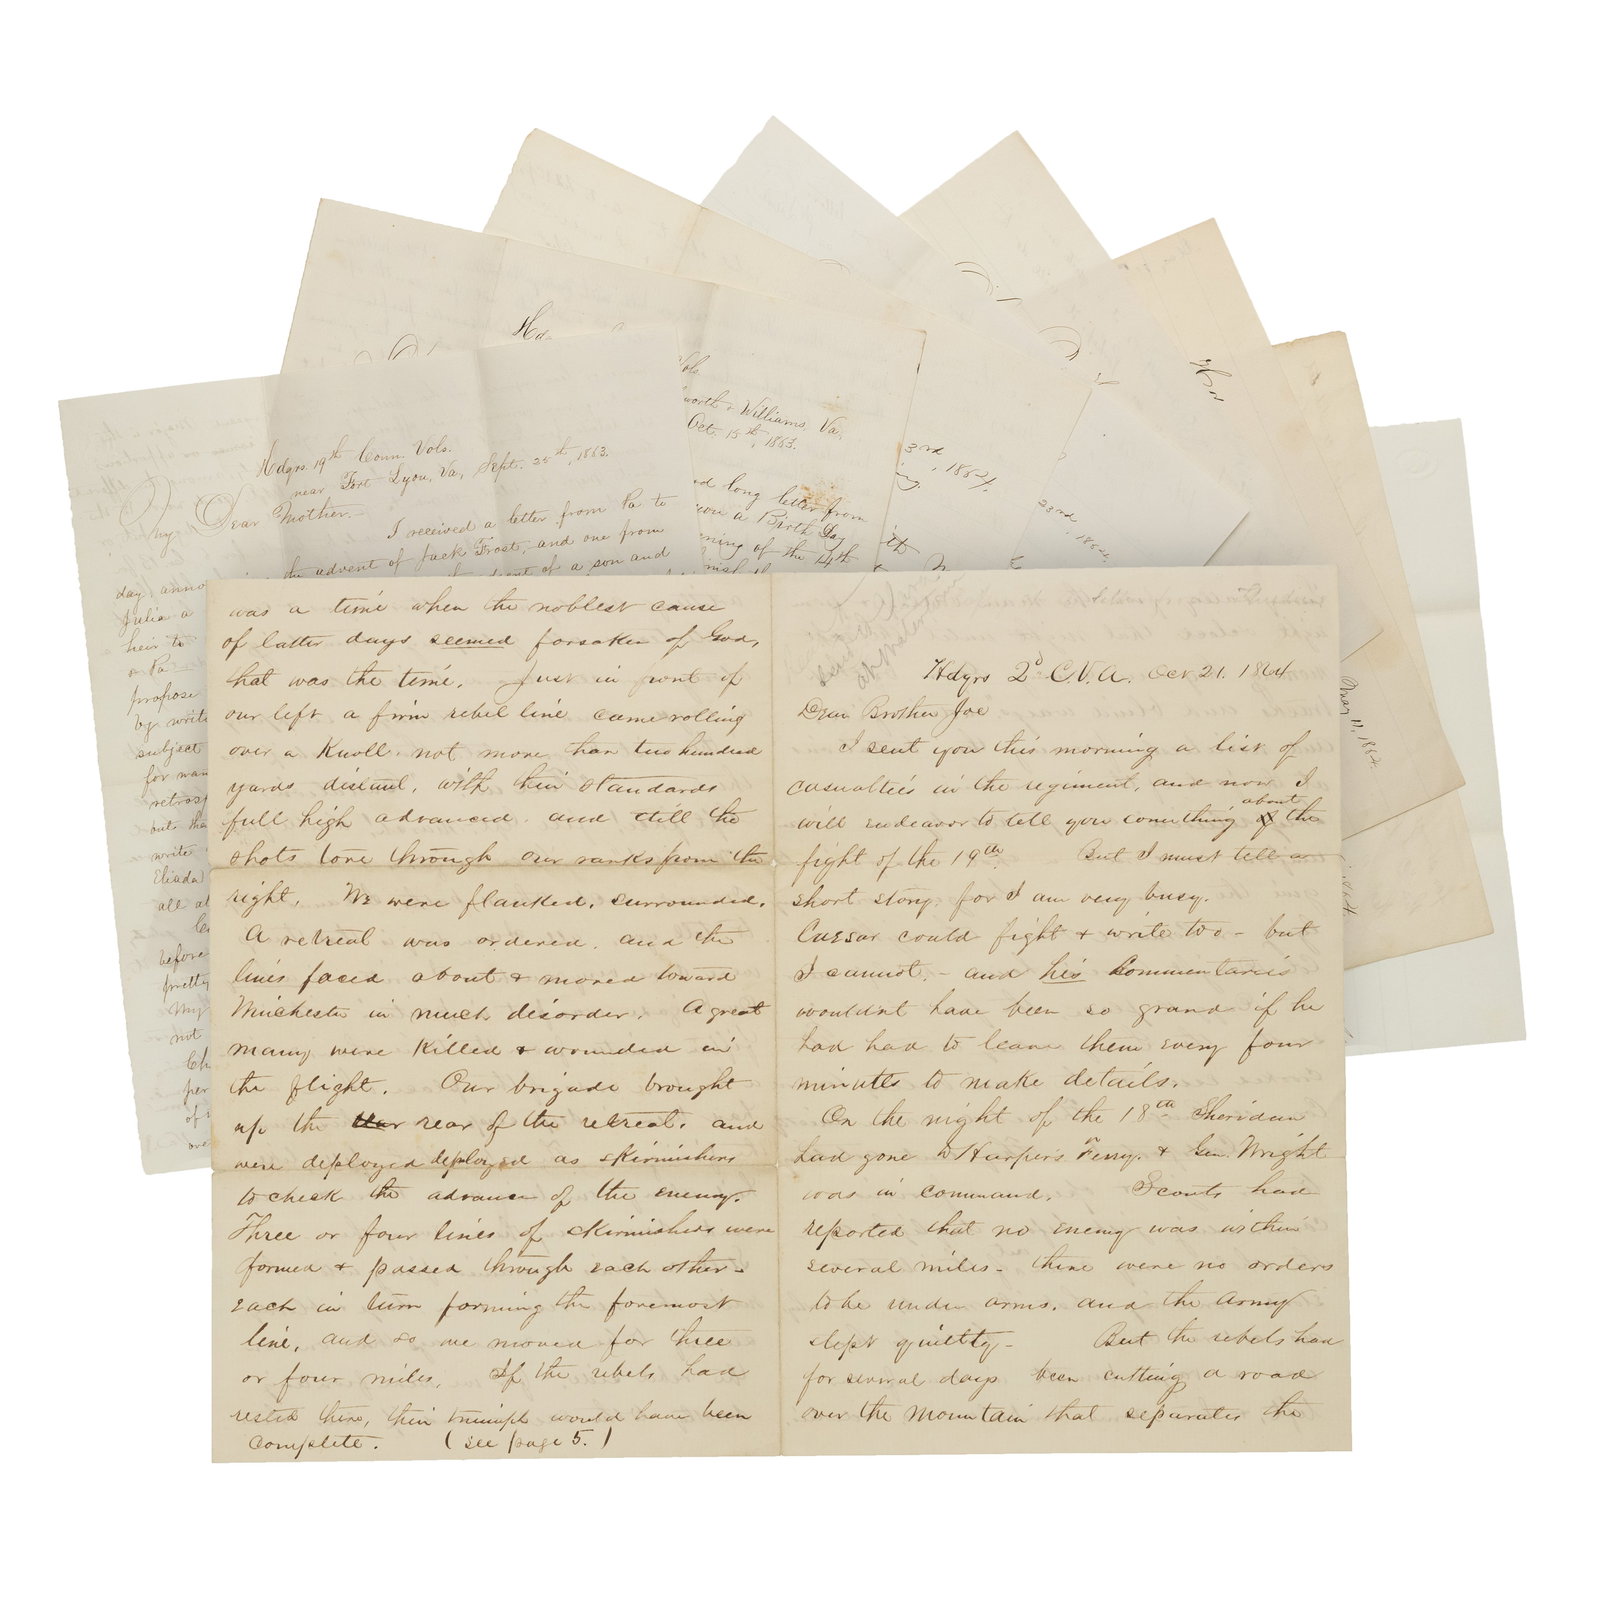 Hdqrs. 19th Conn. Vols.
near Fort Lyon, Va, Sept. 25th, 1863.
My Dear Mother.
I received a letter from Pa to
the advent of Jack Frost, and one from
of a son and
day, anno
Julia a
heir to
& Pa
propose
by writ
subject
for wan
retros
outs tha
write
Eliada
all a
before
pretty
My
not
per
of
over
Hd
Vols.
worth & Williams, Va.
Oct. 15th, 1863.
ed long letter from
you a Birth Day
ening of the 14th
3rd
, 1864.
ing.
th
23rd, 1864.
May 11, 1864
was a time when the noblest cause
of latter days seemed forsaken of God,
that was the time. Just in front of
our left a firm rebel line came rolling
over a Knoll, not more than two hundred
yards distant, with their standards
full high advanced. and still the
shots tore through our ranks from the
right. We were flanked, surrounded.
A retreat was ordered, and the
lines faced about & moved toward
Winchester in much disorder. A great
many were killed & wounded in
the flight. Our brigade brought
up the rear of the retreat, and
were deployed deployed as skirmishers
to check the advance of the enemy.
Three or four lines of skirmishers were
formed & passed through each other -
each in turn forming the foremost
line, and so we moved for three
or four miles. If the rebels had
rested there, their triumph would have been
complete. (see page 5.)
Hdqrs 2d C.V.A. Oct 21. 1864
Dear Brother Joe
I sent you this morning a list of
casualties in the regiment, and now I
will endeavor to tell you something of about the
fight of the 19th. But I must tell a
short story, for I am very busy.
Caesar could fight & write too - but
I cannot, - and his Commentaries
wouldnt have been so grand if he
had had to leave them every four
minutes to make details.
On the night of the 18th Sheridan
had gone to Harper's Ferry, & Gen. Wright
was in command. Scouts had
reported that no enemy was within
several miles - there were no orders
to be under arms, and the Army
slept quietly - But the rebels had
for several days been cutting a road
over the Mountain that separates the